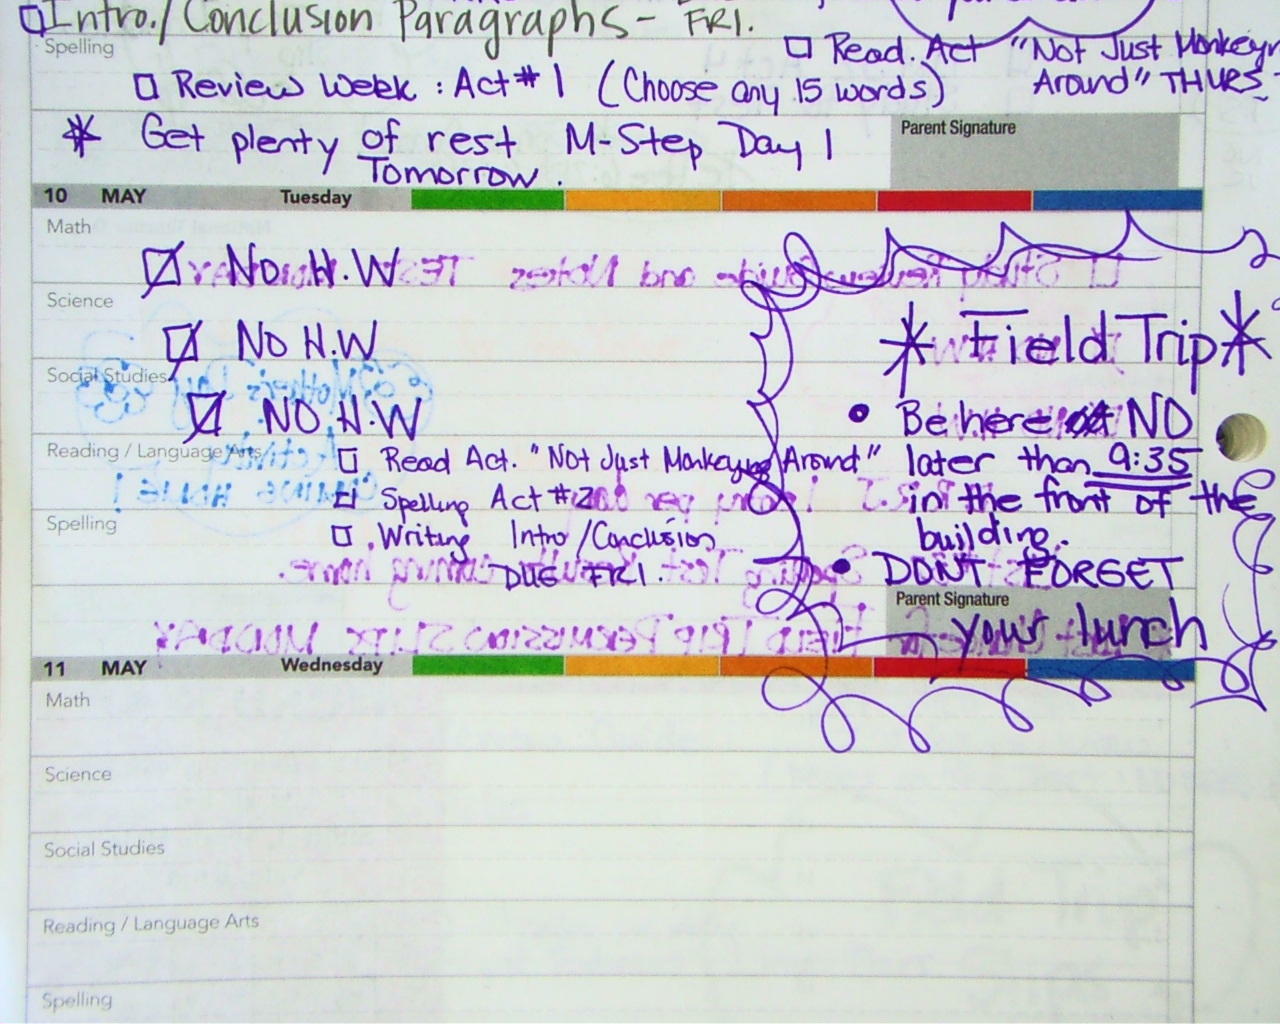 Intro./Conclusion Paragraphs - FRI.
Spelling
Read. Act "Not Just Monkeyn
Around" THURS-
Review Week : Act # 1 (Choose any 15 words)
* Get plenty of rest M-Step Day 1
Tomorrow.
Parent Signature
10 MAY Tuesday
Math
No H.W
Science
No H.W
Social Studies
NO H.W
Reading / Language Arts
Read Act. "Not Just Monkeying Around"
Spelling Act #2
Spelling
Writing Intro/Conclusion
DUE FRI.
* Field Trip *
• Be here NO
later than 9:35
in the front of the
building.
• DON'T FORGET
Parent Signature
your lunch
11 MAY Wednesday
Math
Science
Social Studies
Reading / Language Arts
Spelling